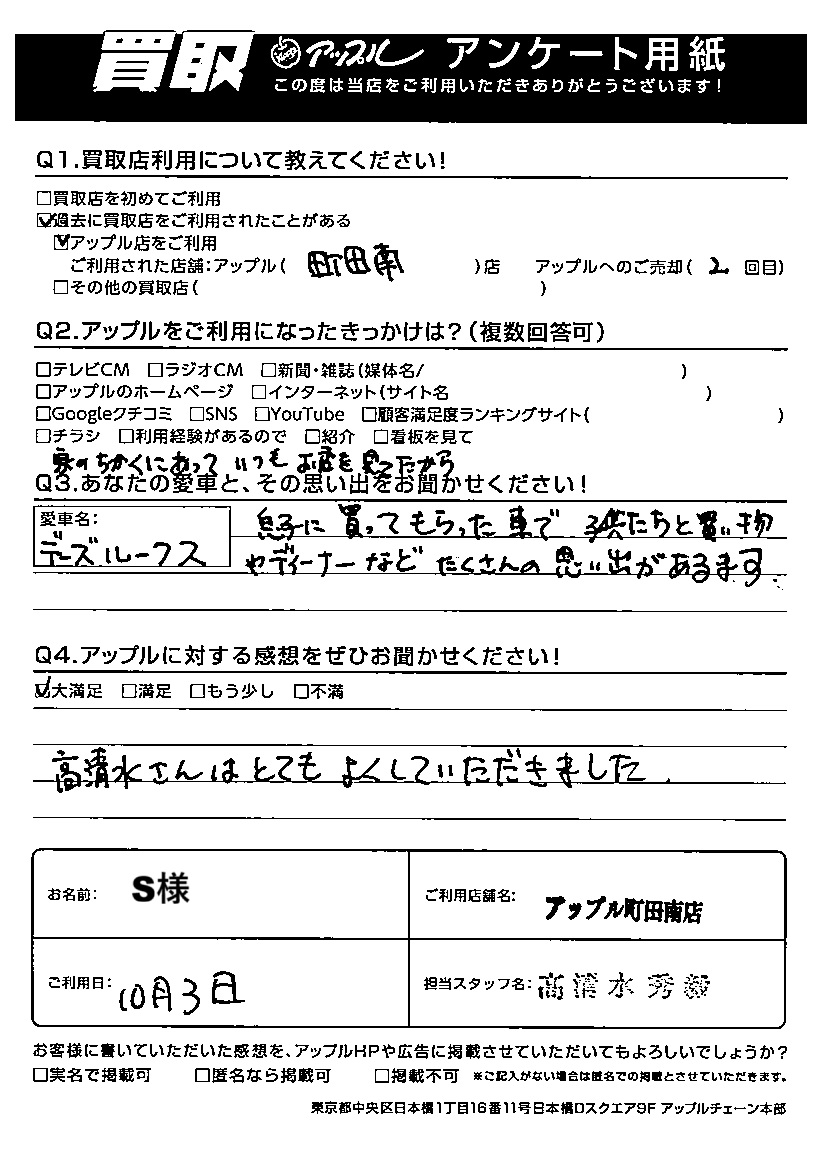 買取 アップル アンケート用紙
この度は当店をご利用いただきありがとうございます!
Q1.買取店利用について教えてください!
□買取店を初めてご利用
☑過去に買取店をご利用されたことがある
☑アップル店をご利用
ご利用された店舗:アップル( 町田南 )店 アップルへのご売却( 2 回目)
□その他の買取店( )
Q2.アップルをご利用になったきっかけは?(複数回答可)
□テレビCM □ラジオCM □新聞・雑誌(媒体名/ )
□アップルのホームページ □インターネット(サイト名 )
□Googleクチコミ □SNS □YouTube □顧客満足度ランキングサイト( )
□チラシ □利用経験があるので □紹介 □看板を見て
家のちかくにあって いつも お店を 見てたから
Q3.あなたの愛車と、その思い出をお聞かせください!
愛車名:
デーズルークス
息子に買ってもらった車で 子供たちと買い物
やディーナーなど たくさんの思い出があるます
Q4.アップルに対する感想をぜひお聞かせください!
☑大満足 □満足 □もう少し □不満
高清水さんはとても よくしていただきました.
お名前: S様 ご利用店舗名: アップル町田南店
ご利用日: 10月3日 担当スタッフ名: 高清水秀
お客様に書いていただいた感想を、アップルHPや広告に掲載させていただいてもよろしいでしょうか?
□実名で掲載可 □匿名なら掲載可 □掲載不可 ※ご記入がない場合は匿名での掲載とさせていただきます。
東京都中央区日本橋1丁目16番11号日本橋Dスクエア9F アップルチェーン本部